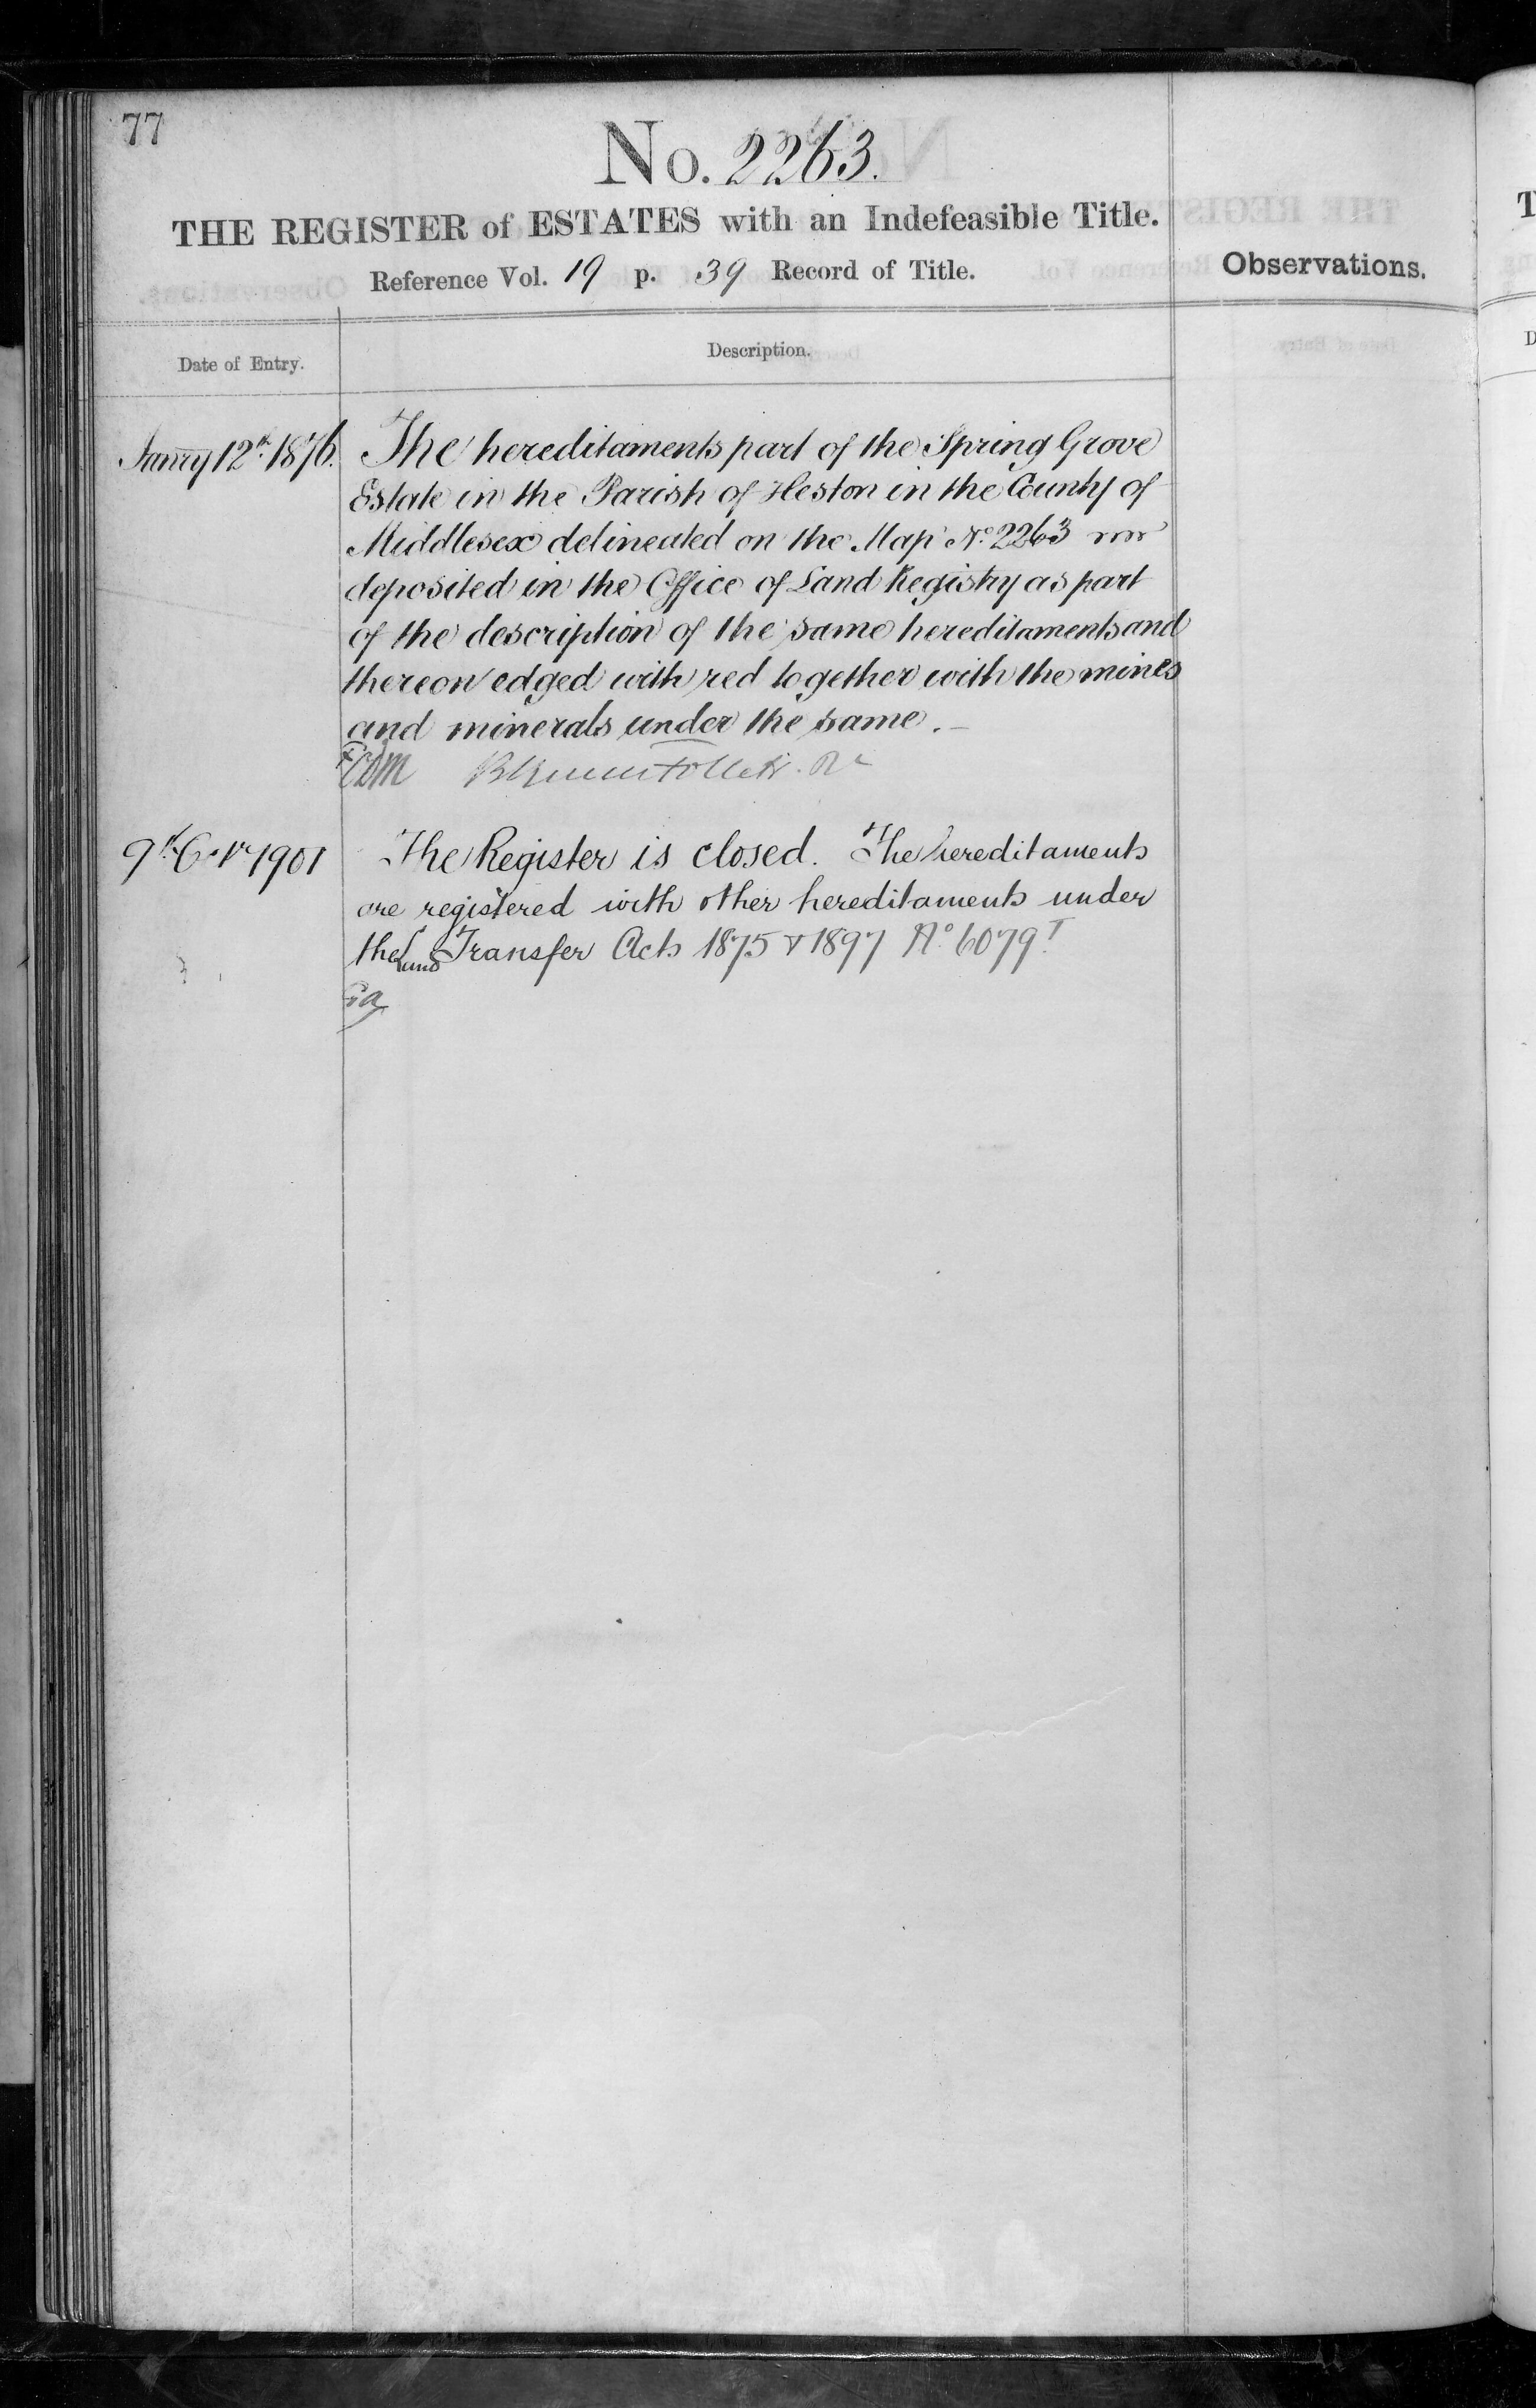 77
No. 2263.
THE REGISTER of ESTATES with an Indefeasible Title.
Reference Vol. 19 p. 39 Record of Title.
Observations.
Date of Entry.
Description.
Janry 12th 1876.
The hereditaments part of the Spring Grove
Estate in the Parish of Heston in the County of
Middlesex delineated on the Map No. 2263
deposited in the Office of Land Registry as part
of the description of the same hereditaments and
thereon edged with red together with the mines
and minerals under the same.
9th 1901
The Register is closed. The hereditaments
are registered with other hereditaments under
the Land Transfer Acts 1875 & 1897 No. 6079